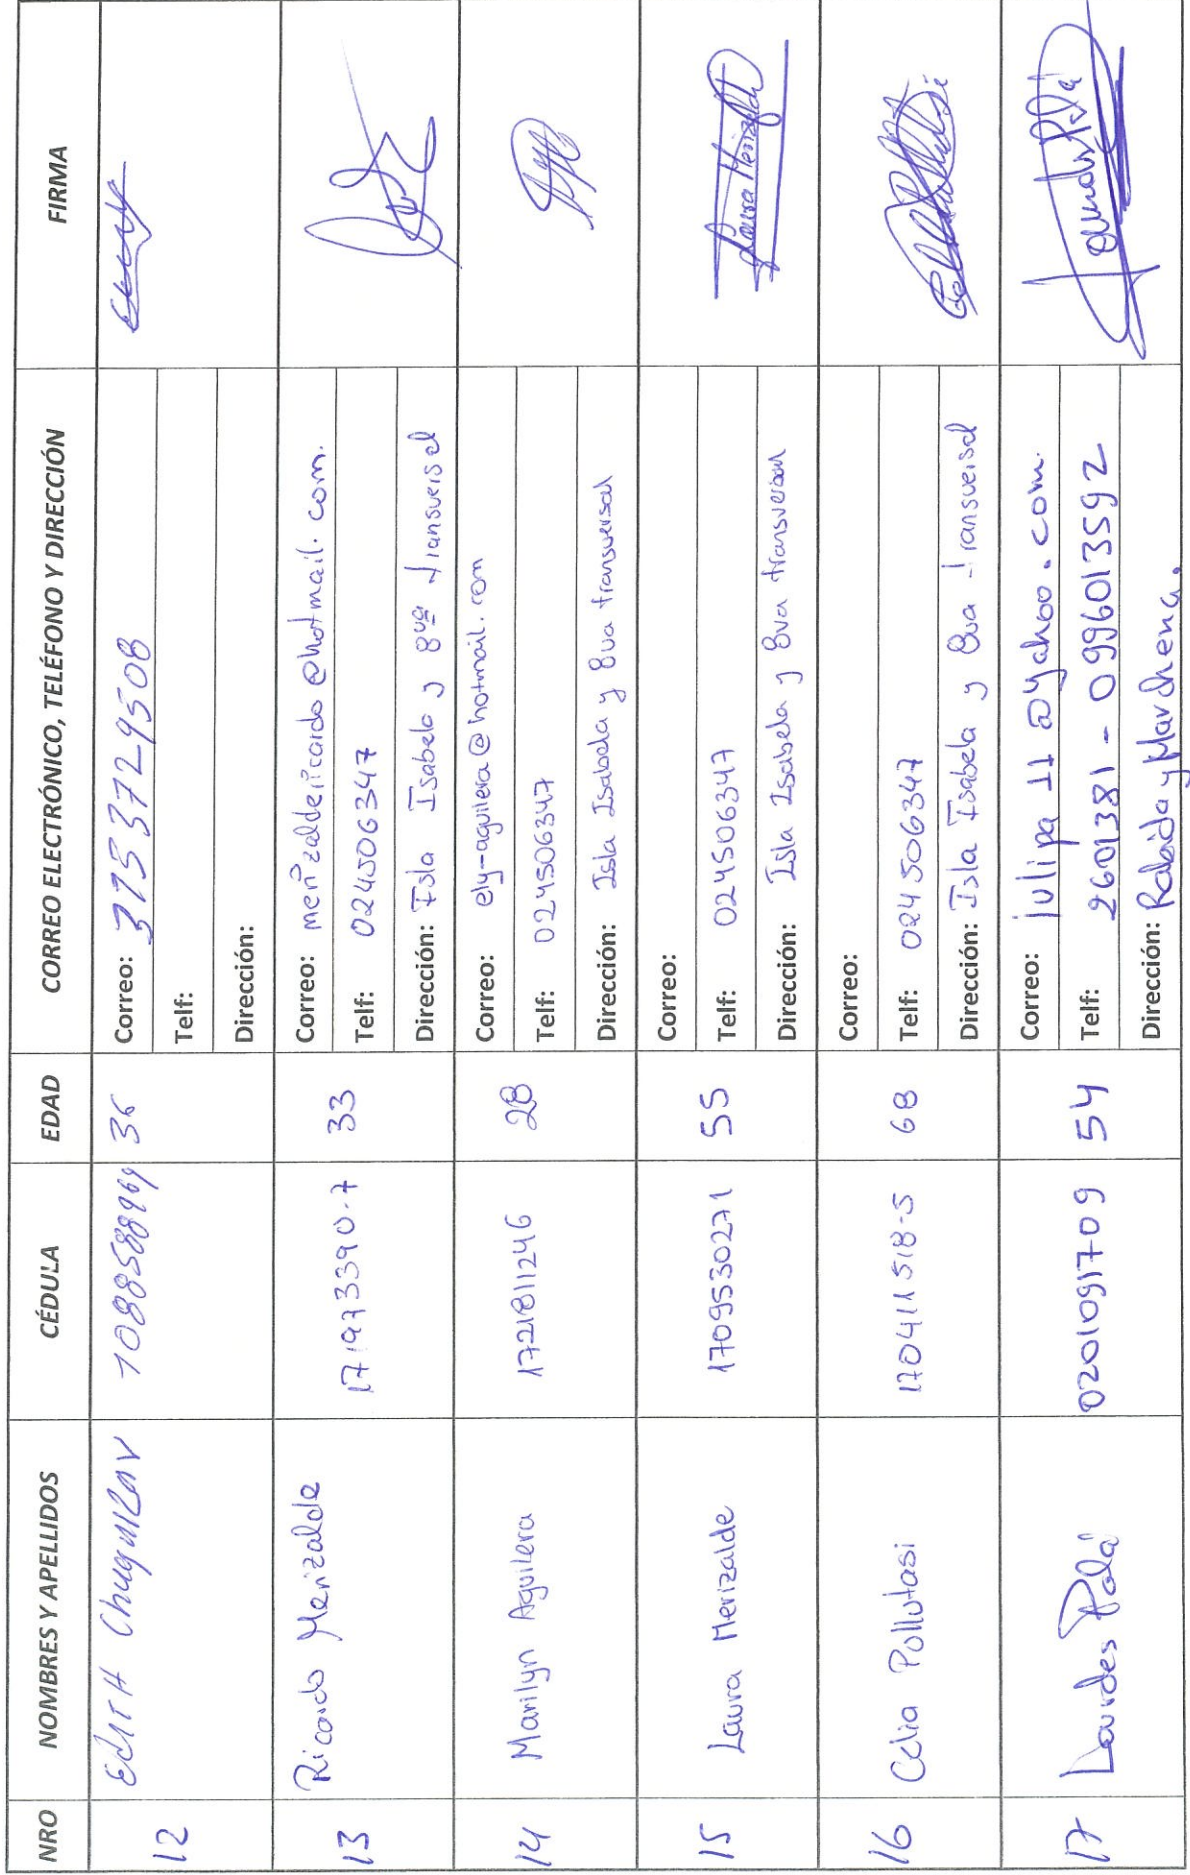 NRO NOMBRES Y APELLIDOS CÉDULA EDAD CORREO ELECTRÓNICO, TELÉFONO Y DIRECCIÓN FIRMA
12 Edith 1088588969 36 Correo: 3153729508
Telf:
Dirección:
13 Ricardo Merizalde 171973390-7 33 Correo: merizaldericardo@hotmail.com.
Telf: 024506347
Dirección: Isla Isabela y 8va Transversal
14 Marilyn Aguilera 1721811246 28 Correo: ely-aguilera@hotmail.com
Telf: 024506347
Dirección: Isla Isabela y 8va transversal
15 Laura Merizalde 1709530271 55 Correo:
Telf: 024506347
Dirección: Isla Isabela y 8va transversal
Laura Merizalde
16 Celia Pollutasi 170411518-5 68 Correo:
Telf: 024506347
Dirección: Isla Isabela y 8va Transversal
17 Lourdes 0201091709 54 Correo: julipa11@yahoo.com.
Telf: 2601381 - 0996013592
Dirección: Rabida y Marchena.